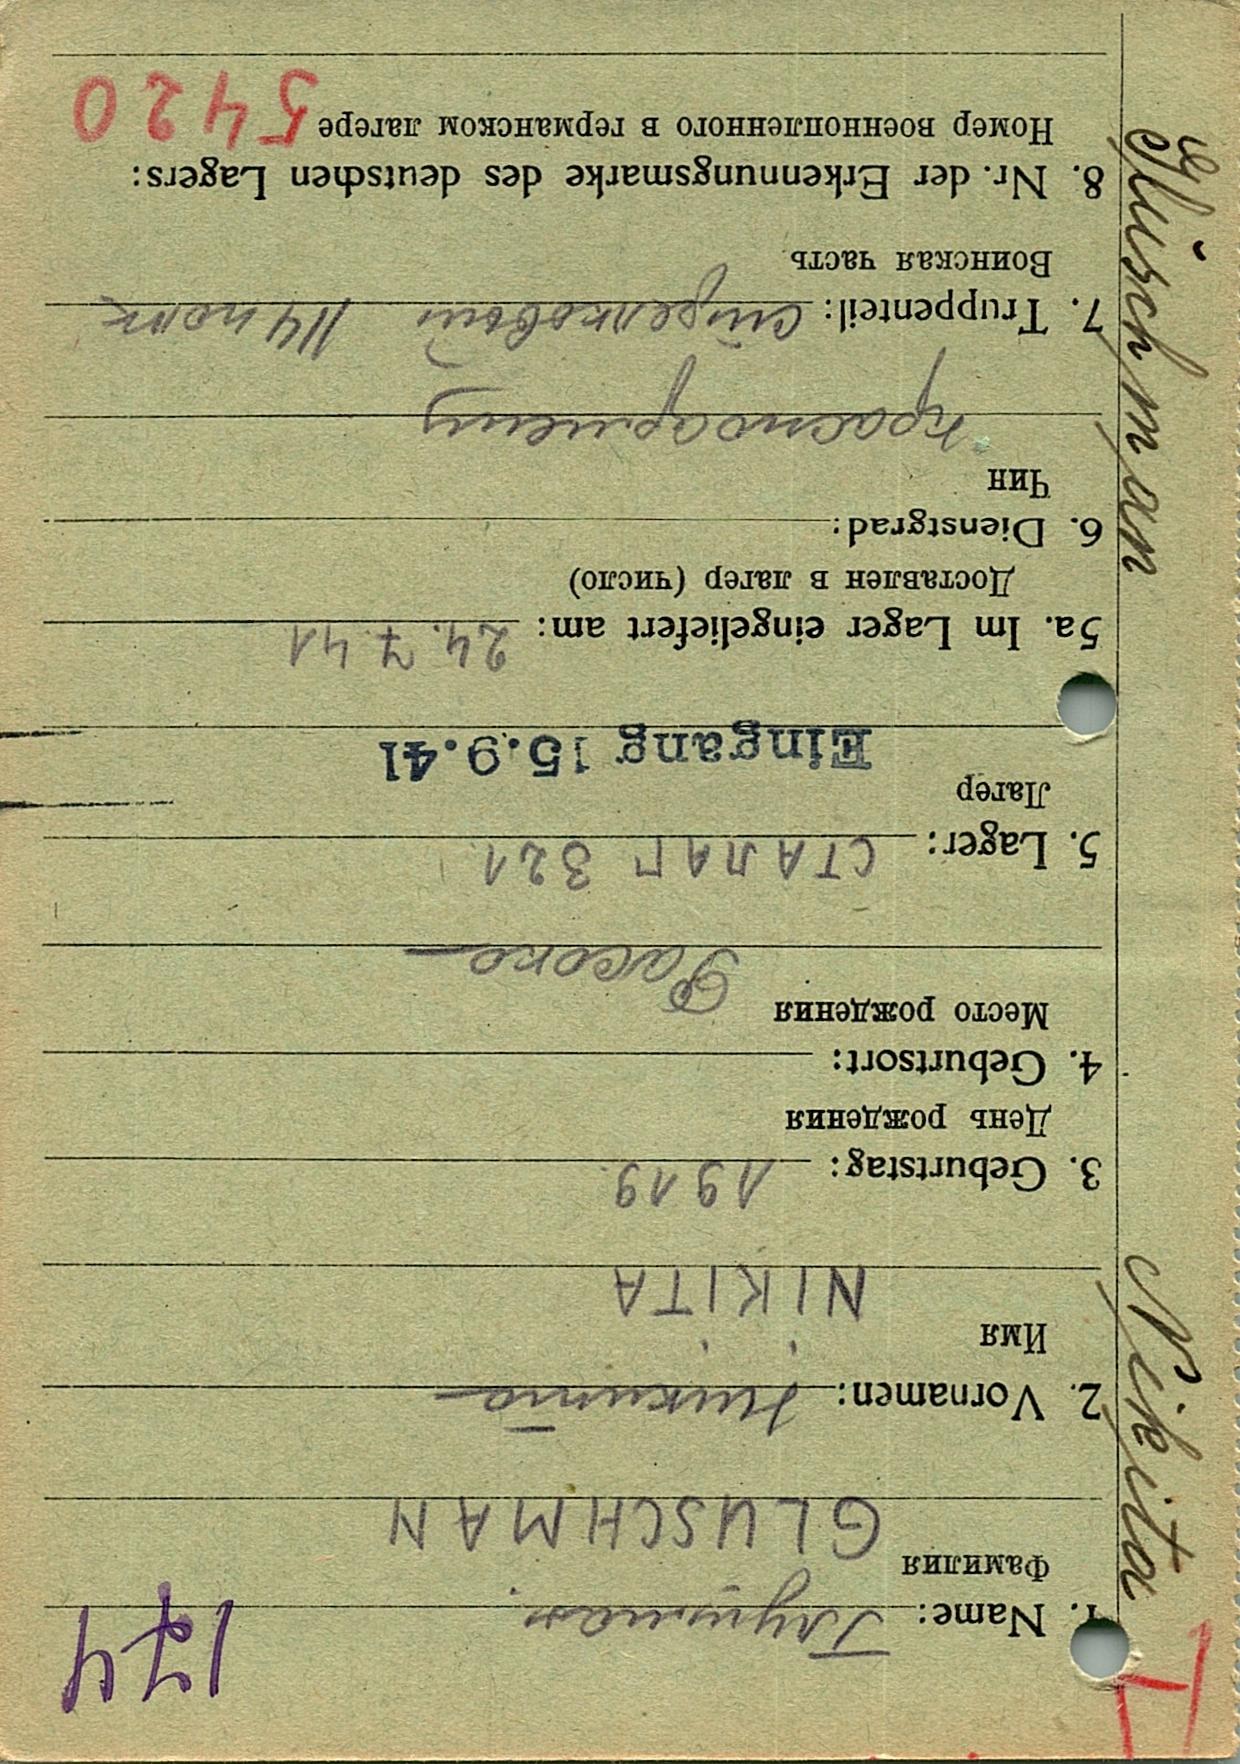 174
1. Name: Глушман
Фамилия
GLUSCHMAN
2. Vornamen: Никита
Имя
NIKITA
3. Geburtstag: 1919.
День рождения
4. Geburtsort:
Место рождения
5. Lager: СТАЛАГ 321
Лагер
Eingang 15.9.41
5a. Im Lager eingeliefert am: 24.7.41
Доставлен в лагер (число)
6. Dienstgrad:
Чин
красноармеец
7. Truppenteil: стрелковый 114 полк
Воинская часть
8. Nr. der Erkennungsmarke des deutschen Lagers:
Номер военнопленного в германском лагере 5420
Nikita Gluschman